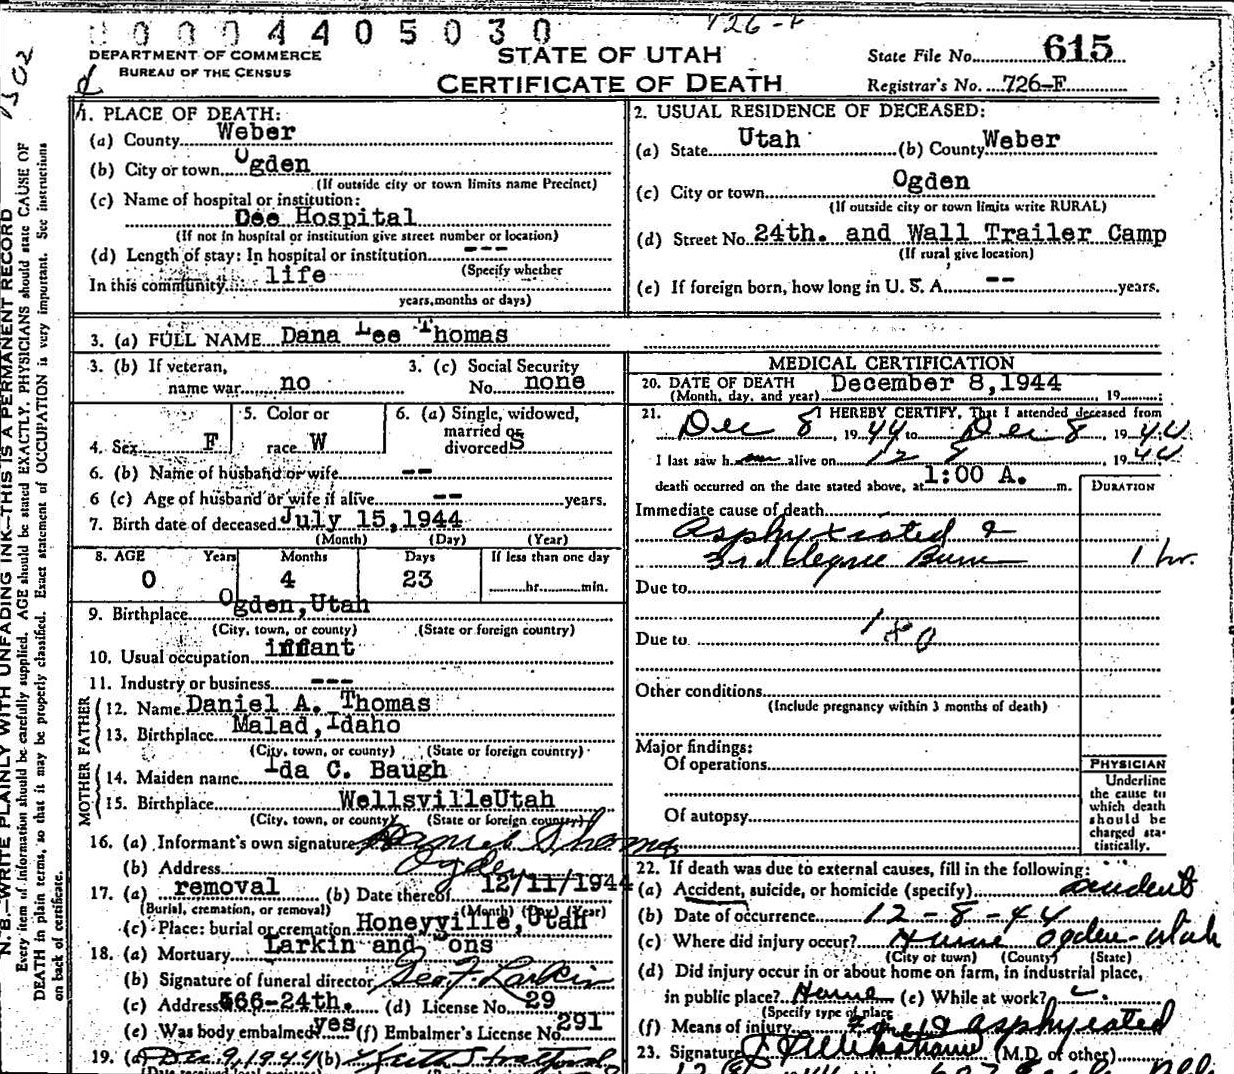 00004405030
726-F
DEPARTMENT OF COMMERCE
BUREAU OF THE CENSUS
STATE OF UTAH
CERTIFICATE OF DEATH
State File No. 615
Registrar's No. 726-F
N. B.—WRITE PLAINLY WITH UNFADING INK—THIS IS A PERMANENT RECORD
Every item of information should be carefully supplied. AGE should be stated EXACTLY. PHYSICIANS should state CAUSE OF
DEATH in plain terms, so that it may be properly classified. Exact statement of OCCUPATION is very important. See instructions
on back of certificate.
1. PLACE OF DEATH:
(a) County Weber
(b) City or town Ogden
(If outside city or town limits name Precinct)
(c) Name of hospital or institution:
Dee Hospital
(If not in hospital or institution give street number or location)
(d) Length of stay: In hospital or institution ---
(Specify whether
In this community life
years, months or days)
2. USUAL RESIDENCE OF DECEASED:
(a) State Utah (b) County Weber
(c) City or town Ogden
(If outside city or town limits write RURAL)
(d) Street No. 24th. and Wall Trailer Camp
(If rural give location)
(e) If foreign born, how long in U. S. A. -- years.
3. (a) FULL NAME Dana Lee Thomas
3. (b) If veteran, name war no
3. (c) Social Security No. none
4. Sex F
5. Color or race W
6. (a) Single, widowed, married or divorced S
6. (b) Name of husband or wife --
6 (c) Age of husband or wife if alive -- years.
7. Birth date of deceased July 15, 1944
(Month) (Day) (Year)
8. AGE Years Months Days If less than one day
0 4 23 hr. min.
9. Birthplace Ogden, Utah
(City, town, or county) (State or foreign country)
10. Usual occupation infant
11. Industry or business ---
FATHER
12. Name Daniel A. Thomas
13. Birthplace Malad, Idaho
(City, town, or county) (State or foreign country)
MOTHER
14. Maiden name Ida C. Baugh
15. Birthplace Wellsville Utah
(City, town, or county) (State or foreign country)
16. (a) Informant's own signature Daniel Thomas
(b) Address Ogden
17. (a) removal (b) Date thereof 12/11/1944
(Burial, cremation, or removal) (Month) (Day) (Year)
(c) Place: burial or cremation Honeyville, Utah
18. (a) Mortuary Larkin and Sons
(b) Signature of funeral director Geo F. Larkin
(c) Address 566-24th. (d) License No. 29
(e) Was body embalmed yes (f) Embalmer's License No. 291
19. (a) Dec 9, 1944 (b)
MEDICAL CERTIFICATION
20. DATE OF DEATH December 8, 1944
(Month, day, and year) 19
21. I HEREBY CERTIFY, That I attended deceased from
Dec 8, 1944 to Dec 8, 1944
I last saw h alive on 12 8 1944
death occurred on the date stated above, at 1:00 A. m.
DURATION
Immediate cause of death
Asphyxiated &
3rd degree Burn 1 hr.
Due to
Due to 180
Other conditions
(Include pregnancy within 3 months of death)
Major findings:
Of operations
Of autopsy
PHYSICIAN
Underline
the cause to
which death
should be
charged sta-
tistically.
22. If death was due to external causes, fill in the following:
(a) Accident, suicide, or homicide (specify) accident
(b) Date of occurrence 12-8-44
(c) Where did injury occur? Home Ogden-Utah
(City or town) (County) (State)
(d) Did injury occur in or about home on farm, in industrial place,
in public place? Home (e) While at work?
(Specify type of place
(f) Means of injury asphyxiated
23. Signature (M.D. or other)